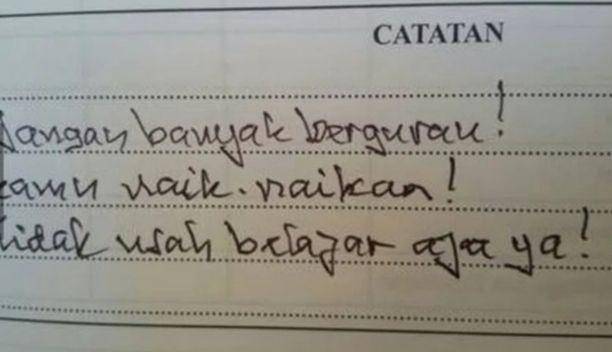 CATATAN
Jangan banyak bergurau!
kamu naik-naikan!
tidak usah belajar aja ya!